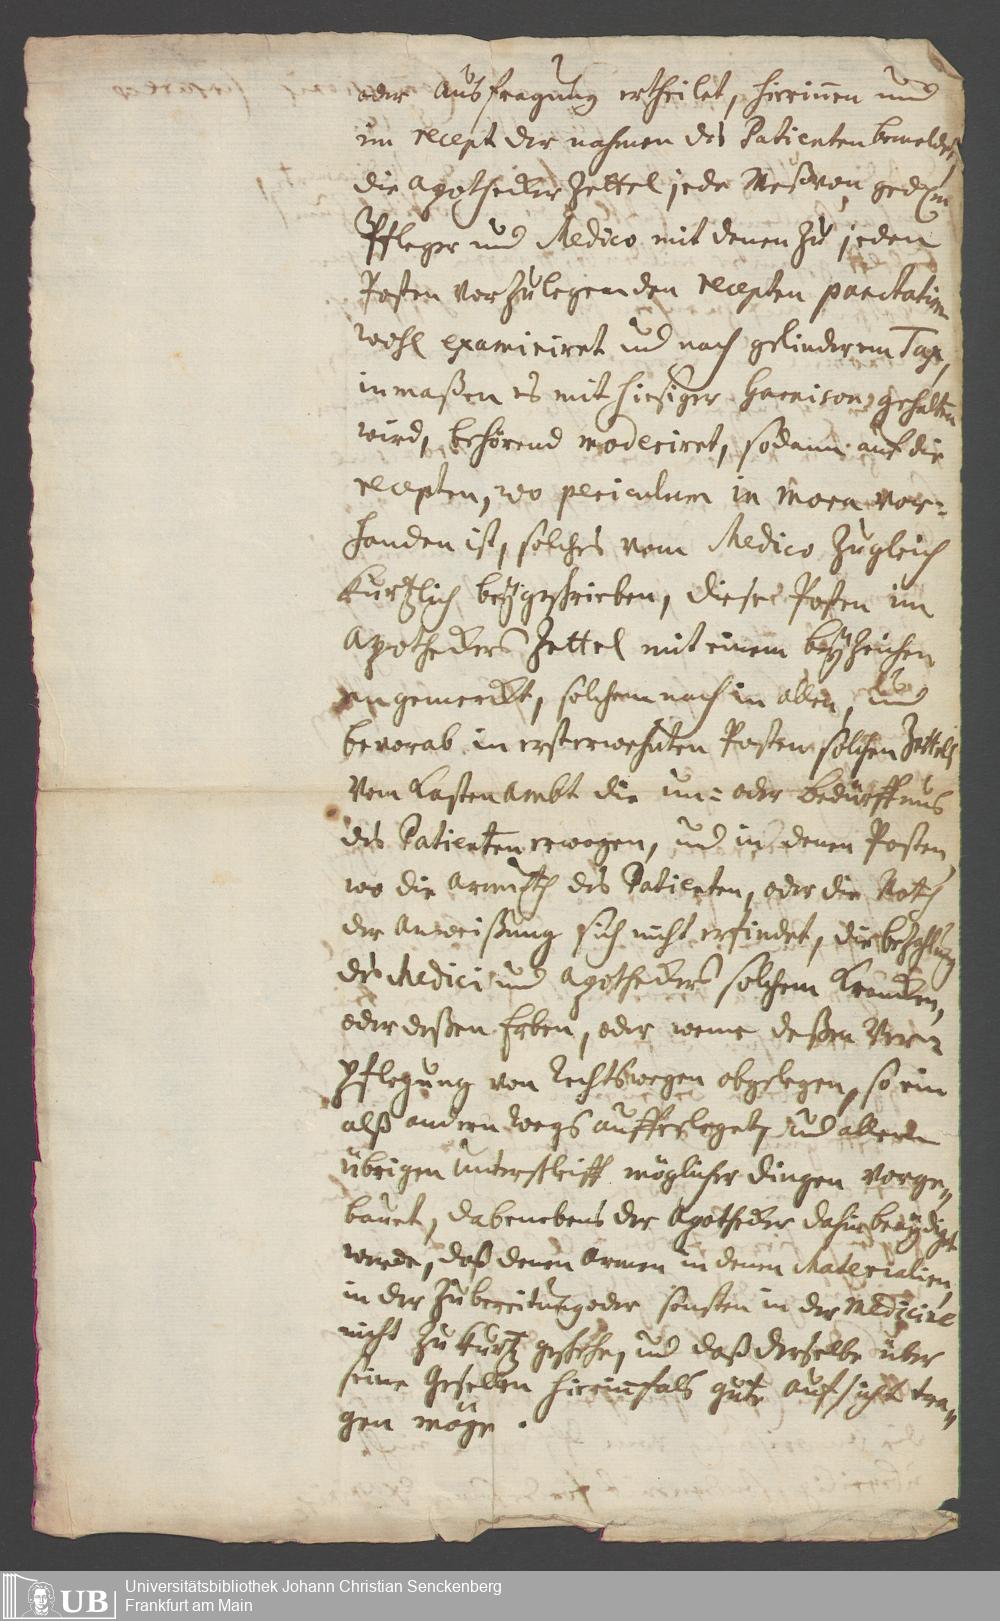 oder Ausfragung ertheilet, hierinnen und
im recept der nahmen des Patienten bemeldet,
die Apothecker Zettel jede Meß von
Pfleger und Medico mit denen zu jeden
Posten vorzulegenden recepten punctatim
wohl examiniret und nach gelinderem Tax,
inmaßen es mit hiesiger Garnison gehalten
wird, behörend moderiret, sodann auf die
recepten, wo periculum in mora vor-
handen ist, solches vom Medico zugleich
kurtzlich beygeschrieben, dieser Posten im
Apotheckers Zettel mit einem beyzeichen
angemerckt, solchem nach in allen, und
bevorab in ersterwehnten Posten solchen Zettels
vom Kasten Ambt die un- oder Bedürffnus
des Patienten erwogen, und in denen Posten,
wo die Armuth des Patienten, oder die Noth
der Anweißung sich nicht erfindet, die bezahlung
des Medici und Apotheckers solchem Krancken,
oder deßen Erben, oder weme deßen Ver-
pflegung von Rechtswegen obgelegen, so ein
alß andern Wegs aufferleget, und allem
übrigen Unterschleiff möglicher dingen vorge-
bauet, dabenebens der Apothecker dahin beeydigt
werde, daß denen Armen in denen Materialien,
in der Zubereitung oder sonsten in der Medicine
nicht zu kurtz geschehe, und daß derselbe über
seine Gesellen hierinfals gute Aufsicht tra-
gen möge.
UB
Universitätsbibliothek Johann Christian Senckenberg
Frankfurt am Main